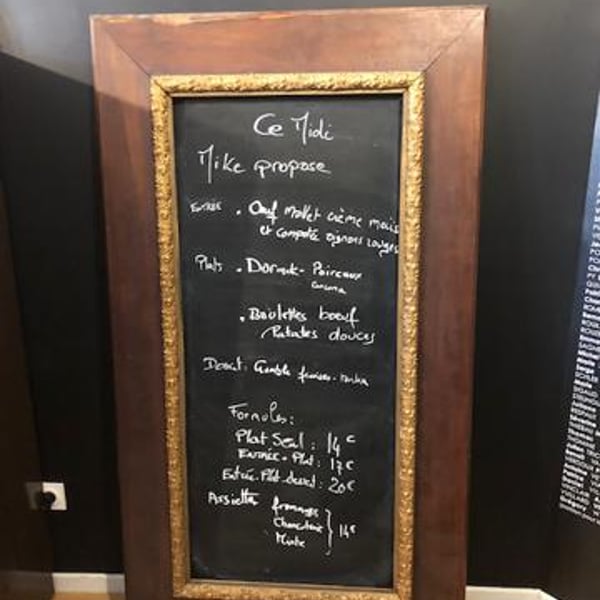 Ce Midi
Mike propose
Entrée . Oeuf Mollet crème maïs
et compotée oignons rouges
Plats . Dorade - Poireaux
curcuma
. Boulettes boeuf
Patates douces
Dessert: Crumble fraises-
Formules:
Plat Seul : 14€
Entrée - Plat : 17€
Entrée-Plat-dessert : 20€
Assiettes fromages
Charcuterie } 14€
Mixte